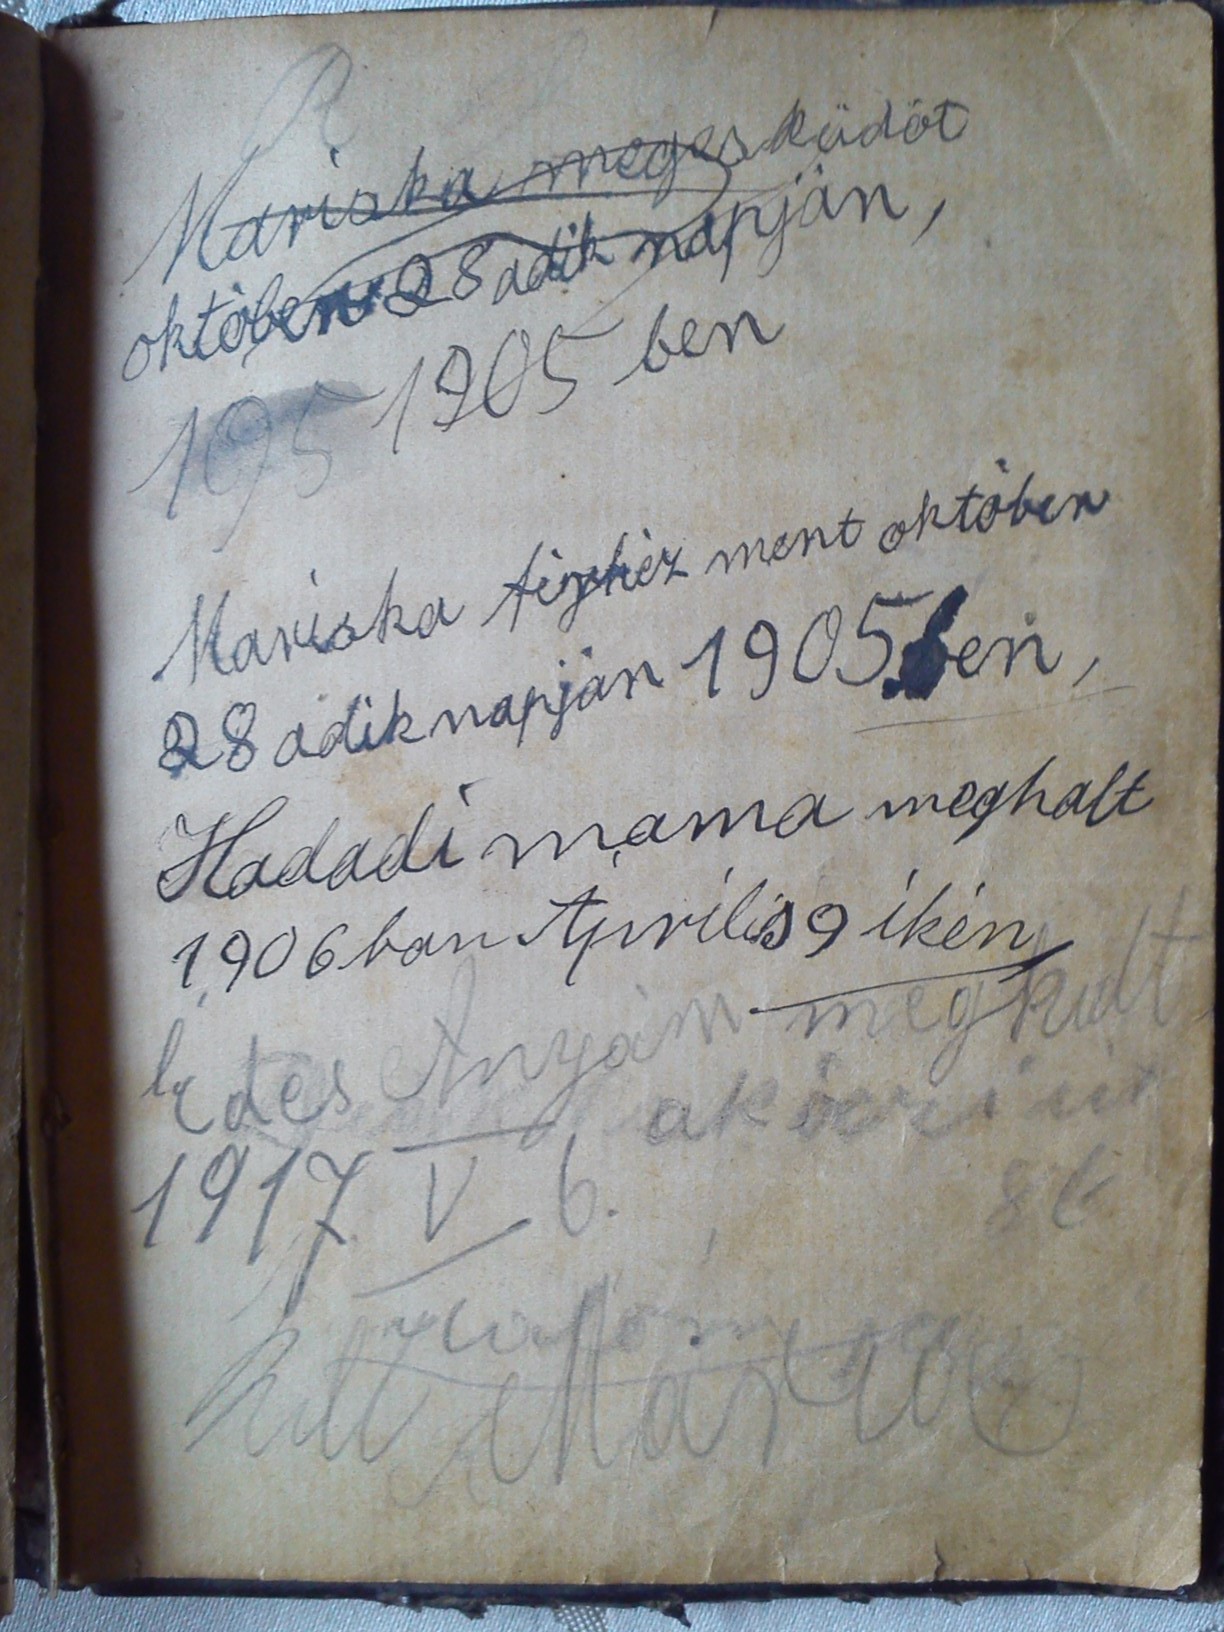 Mariska megesküdöt
októben 28adik napján,
195 1905 ben
Mariska férhez ment októben
28adik napján 1905 ben,
Hadadi mama meghalt
1906 ban Április 9 ikén
Édes Anyám meghalt
1917 V 6.
86
Mária